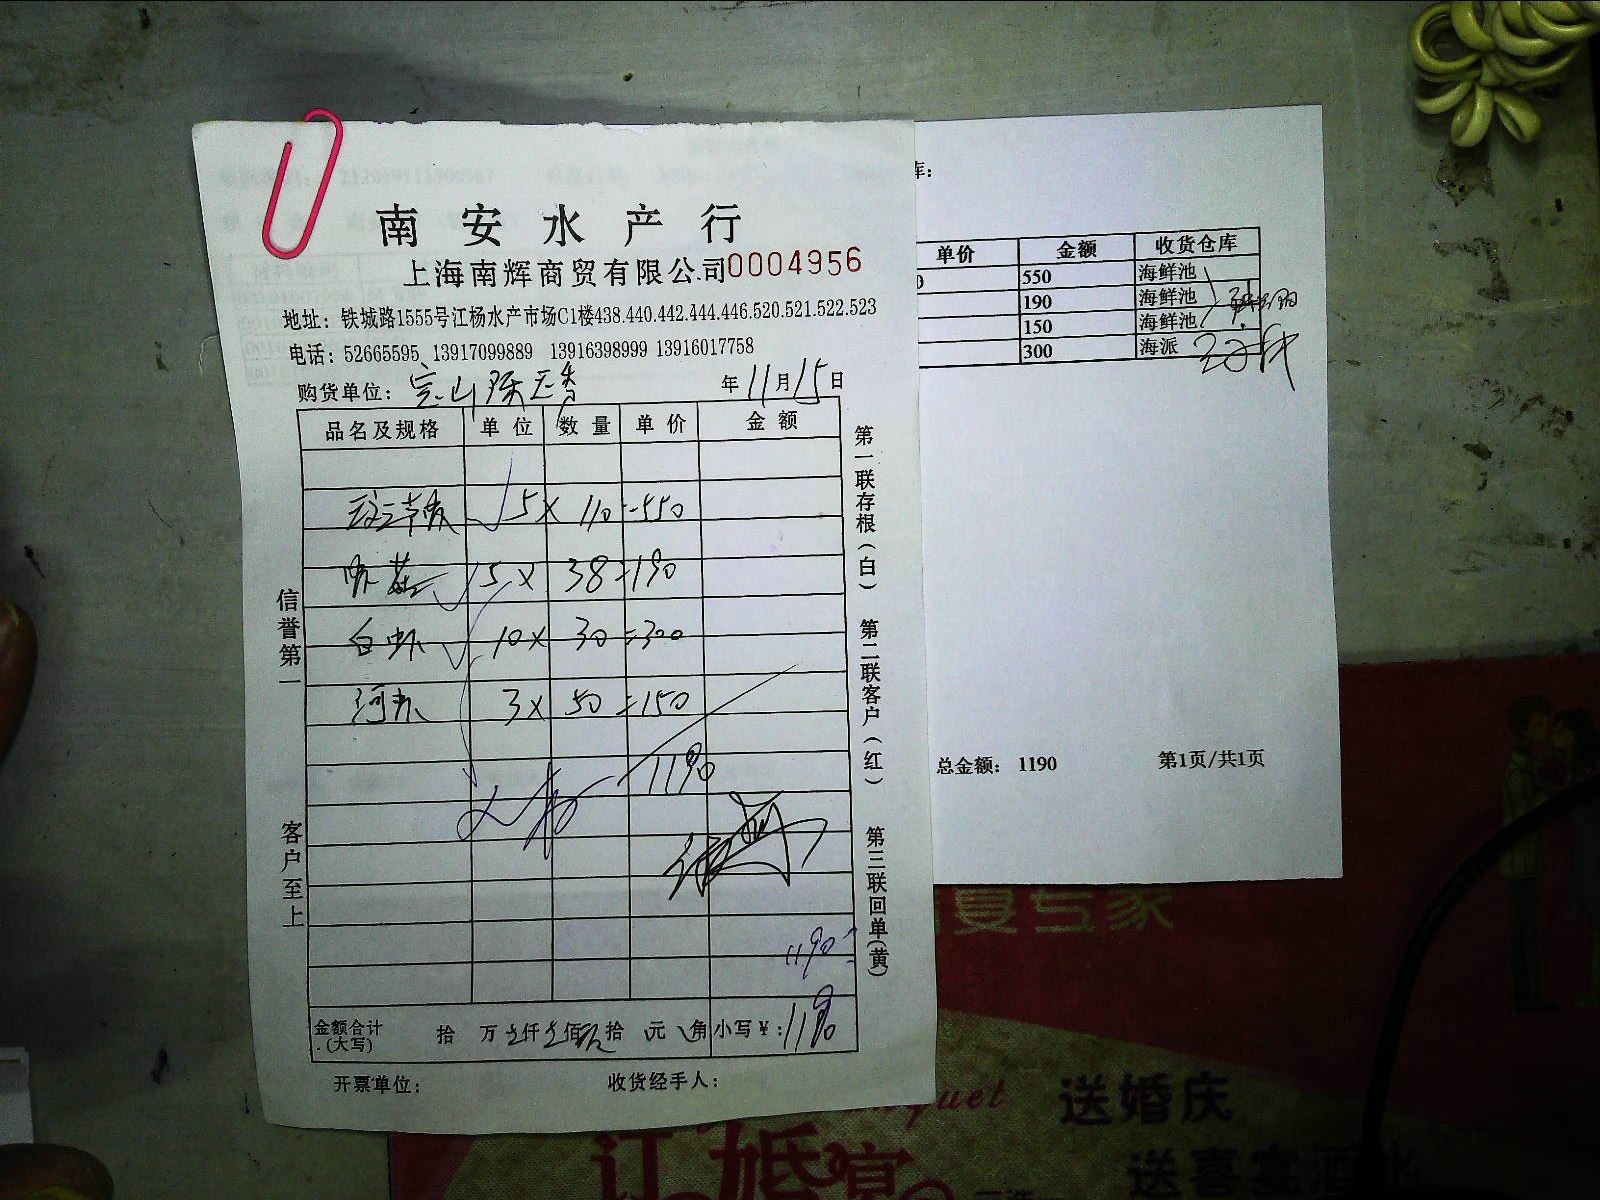 南安水产行
上海南辉商贸有限公司0004956
地址：铁城路1555号江杨水产市场C1楼438.440.442.444.446.520.521.522.523
电话：52665595 13917099889 13916398999 13916017758
购货单位：宝山 年11月15日
品名及规格 单位 数量 单价 金额
5× 110=550
5× 38=190
白虾 10× 30=300
河虾 3× 50=150
1190
1190
金额合计(大写) 拾 万 仟 佰 拾 元 角 小写￥：1190
开票单位： 收货经手人：
信誉第一
客户至上
第一联存根(白) 第二联客户(红) 第三联回单(黄)
库：
单价 金额 收货仓库
0 550 海鲜池
190 海鲜池
150 海鲜池
300 海派
总金额： 1190 第1页/共1页
专家
送婚庆
订婚宴
送喜宴酒水